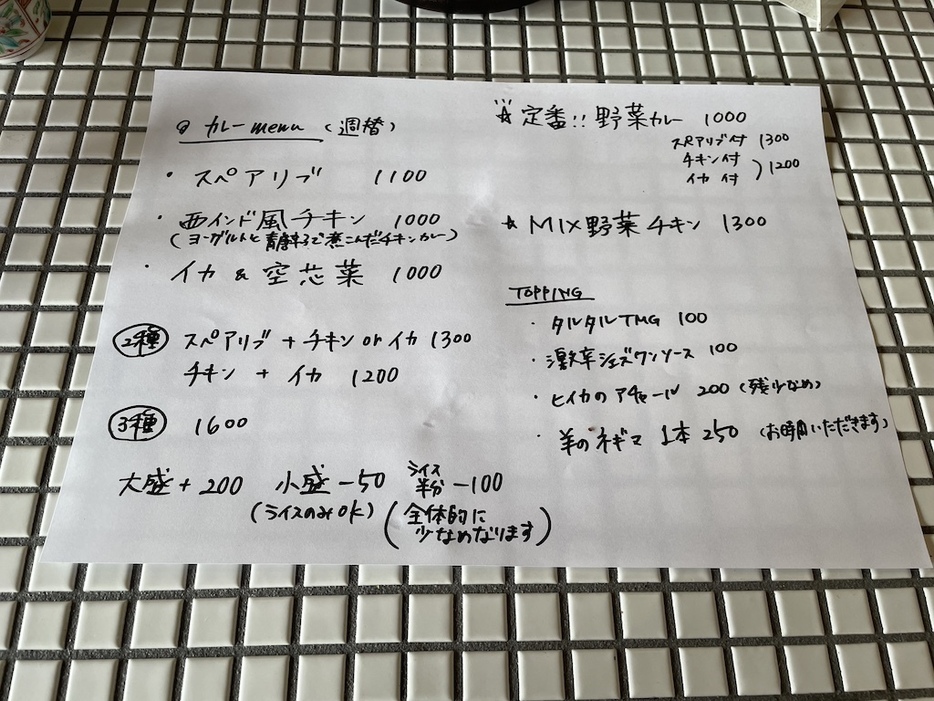 カレーmenu (週替)
・スペアリブ 1100
・西インド風チキン 1000
(ヨーグルトと青唐辛子で煮こんだチキンカレー)
・イカ & 空芯菜 1000
2種 スペアリブ + チキン or イカ 1300
チキン + イカ 1200
3種 1600
大盛 + 200 小盛 -50 ライス半分 -100
(ライスのみ OK) (全体的に
少なめなります)
☆ 定番!! 野菜カレー 1000
スペアリブ付 1300
チキン付
イカ付 ) 1200
★ MIX野菜チキン 1300
TOPPING
・タルタルTMG 100
・激辛シェズワンソース 100
・ヒイカのアチャール 200 (残少なめ)
・羊のネギマ 1本 250 (お時間いただきます)